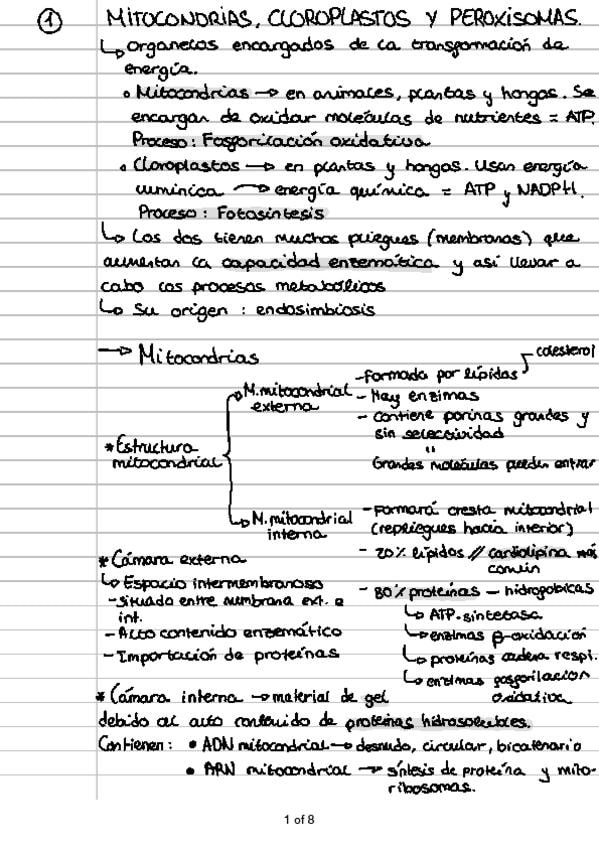 ① MITOCONDRIAS, CLOROPLASTOS Y PEROXISOMAS.
↳ Organelos encargados de la transformación de
energía.
• Mitocondrias → en animales, plantas y hongos. Se
encargan de oxidar moléculas de nutrientes = ATP.
Proceso: Fosforilación oxidativa
• Cloroplastos → en plantas y hongos. Usan energía
lumínica → energía química = ATP y NADPH.
Proceso: Fotosíntesis
↳ Los dos tienen muchos pliegues (membranas) que
aumentan la capacidad enzemática y así llevar a
cabo los procesos metabólicos
↳ Su origen : endosimbiosis
→ Mitocondrias
* Estructura
mitocondrial
M. mitocondrial
externa
- Formada por lípidos → colesterol
- Hay enzimas
- Contiene porinas grandes y
sin selectividad
"
Grandes moléculas pueden entrar
↳ M. mitocondrial
interna
- Formará cresta mitocondrial
(repliegues hacia interior)
- 20% lípidos // cardiolipina más
común
- 80% proteínas — hidrofóbicas
↳ ATP-sintetasa
↳ enzimas β-oxidación
↳ proteínas cadena respi.
↳ enzimas fosforilación
oxidativa
* Cámara externa
↳ Espacio intermembranoso
- Situado entre membrana ext. e
int.
- Alto contenido enzemático
- Importación de proteínas
* Cámara interna → material de gel
debido al alto contenido de proteínas hidrosolubles.
Contienen : • ADN mitocondrial → desnudo, circular, bicatenario
• ARN mitocondrial → síntesis de proteína y mito-
ribosomas.
1 of 8